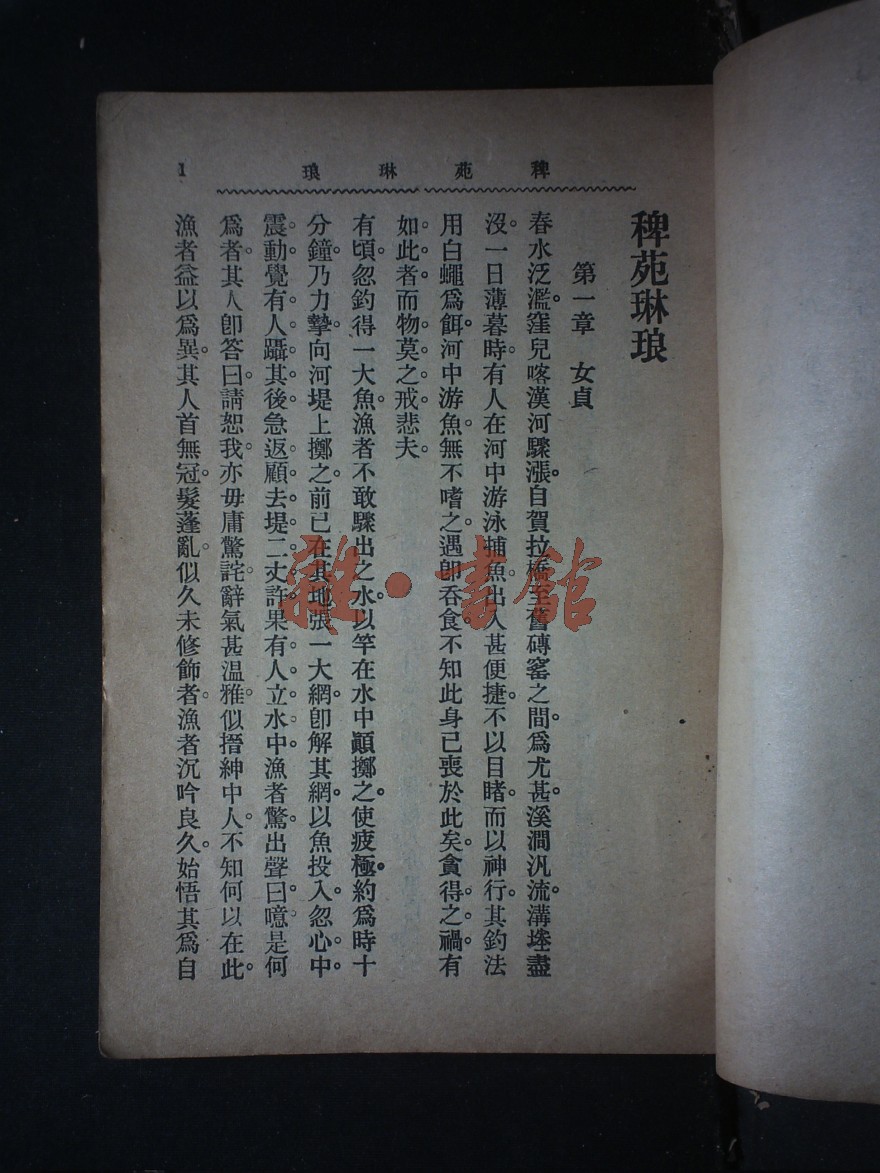 稗苑琳琅
1
稗苑琳琅
第一章 女貞
春水泛濫。窪兒喀漢河驟漲。自賀拉橋至舊磚窰之間。爲尤甚。溪澗汎流。溝塍盡
沒。一日薄暮時。有人在河中游泳捕魚。出入甚便捷。不以目睹。而以神行。其釣法
用白蠅爲餌。河中游魚。無不嗜之。遇卽吞食。不知此身已喪於此矣。貪得之禍。有
如此者。而物莫之戒。悲夫。
有頃。忽釣得一大魚。漁者不敢驟出之水。以竿在水中顚擲之。使疲極。約爲時十
分鐘。乃力摯。向河堤上擲之。前已在其地張一大網。卽解其網。以魚投入。忽心中
震動。覺有人躡其後。急返顧。去堤二丈許。果有人立水中。漁者驚出聲曰。噫。是何
爲者。其人卽答曰。請恕我。亦毋庸驚詫。辭氣甚温雅。似搢紳中人。不知何以在此。
漁者益以爲異。其人首無冠。髮蓬亂。似久未修飾者。漁者沉吟良久。始悟其爲自
雜·書館